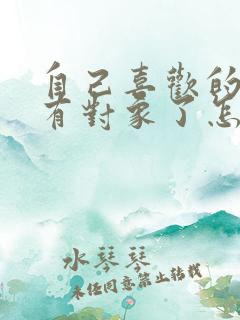 自己喜歡的
有對象了怎
水琴琴
未經同意禁止轉載